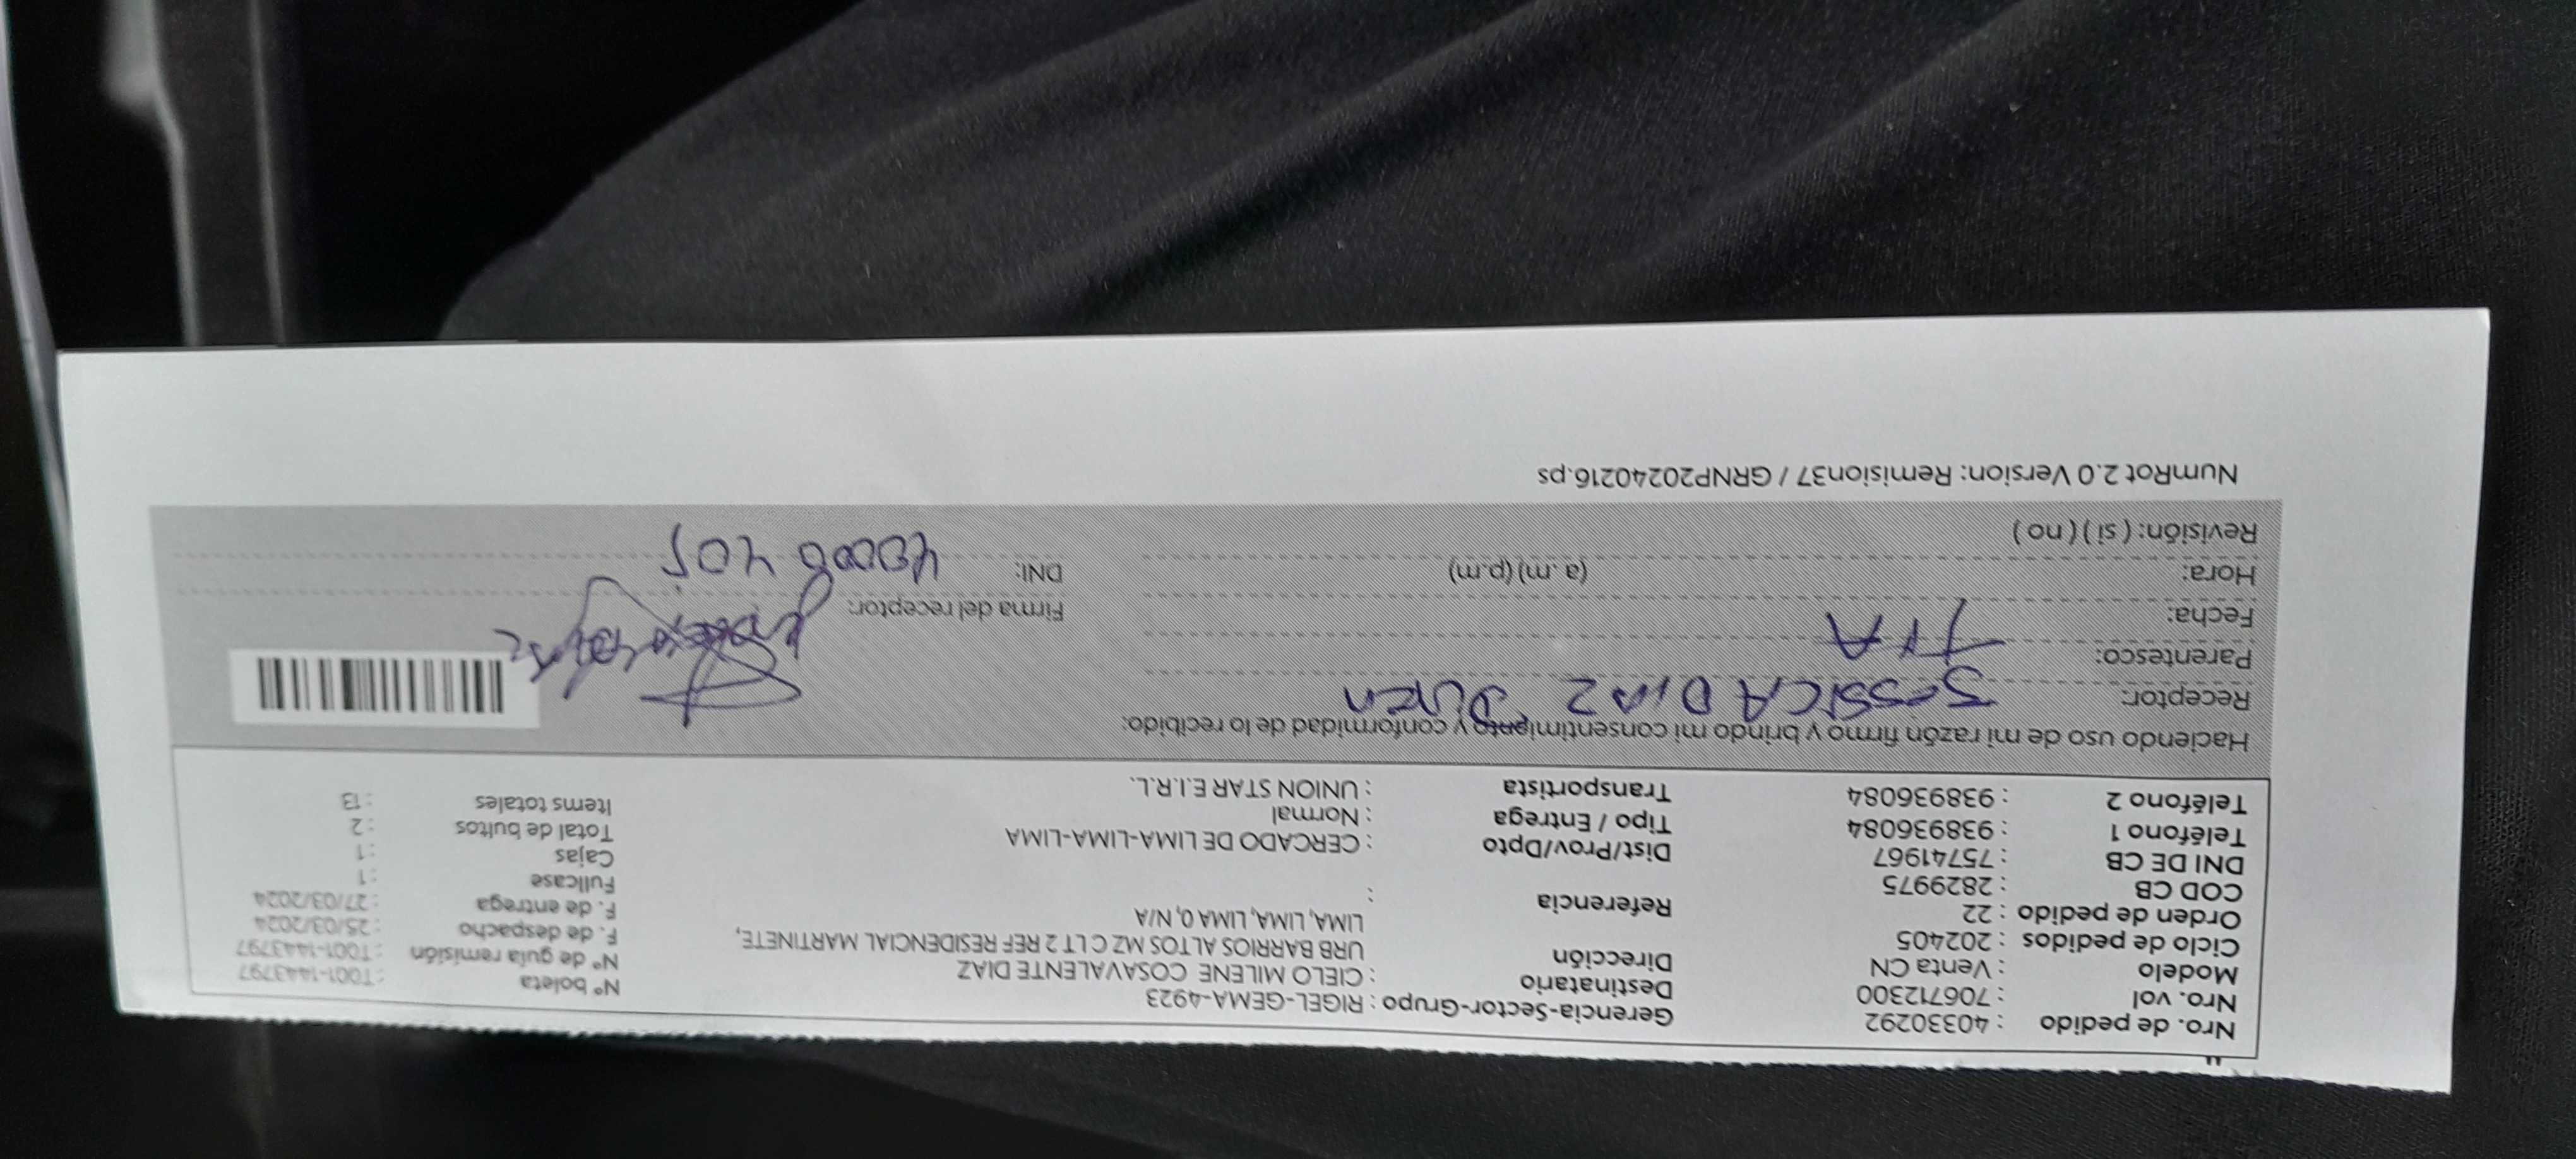 Nro. de pedido : 40330292
Nro. vol : 706712300
Modelo : Venta CN
Ciclo de pedidos : 202405
Orden de pedido : 22
COD CB : 2829975
DNI DE CB : 75741967
Teléfono 1 : 938936084
Teléfono 2 : 938936084
Gerencia-Sector-Grupo : RIGEL-GEMA-4923
Destinatario : CIELO MILENE COSAVALENTE DIAZ
Dirección URB BARRIOS ALTOS MZ C LT 2 REF RESIDENCIAL MARTINETE,
LIMA, LIMA, LIMA 0, N/A
Referencia :
Dist/Prov/Dpto : CERCADO DE LIMA-LIMA-LIMA
Tipo / Entrega : Normal
Transportista : UNION STAR E.I.R.L.
N° boleta : T001-1443797
N° de guía remisión : T001-1443797
F. de despacho : 25/03/2024
F. de entrega : 27/03/2024
Fullcase : 1
Cajas : 1
Total de bultos : 2
Items totales : 13
Haciendo uso de mi razón firmo y brindo mi consentimiento y conformidad de lo recibido:
Receptor: JESSICA DIAZ
Parentesco: TIA
Fecha:
Hora: (a .m) (p.m)
Revisión: ( si ) ( no )
Firma del receptor:
DNI:
NumRot 2.0 Version: Remision37 / GRNP20240216.ps